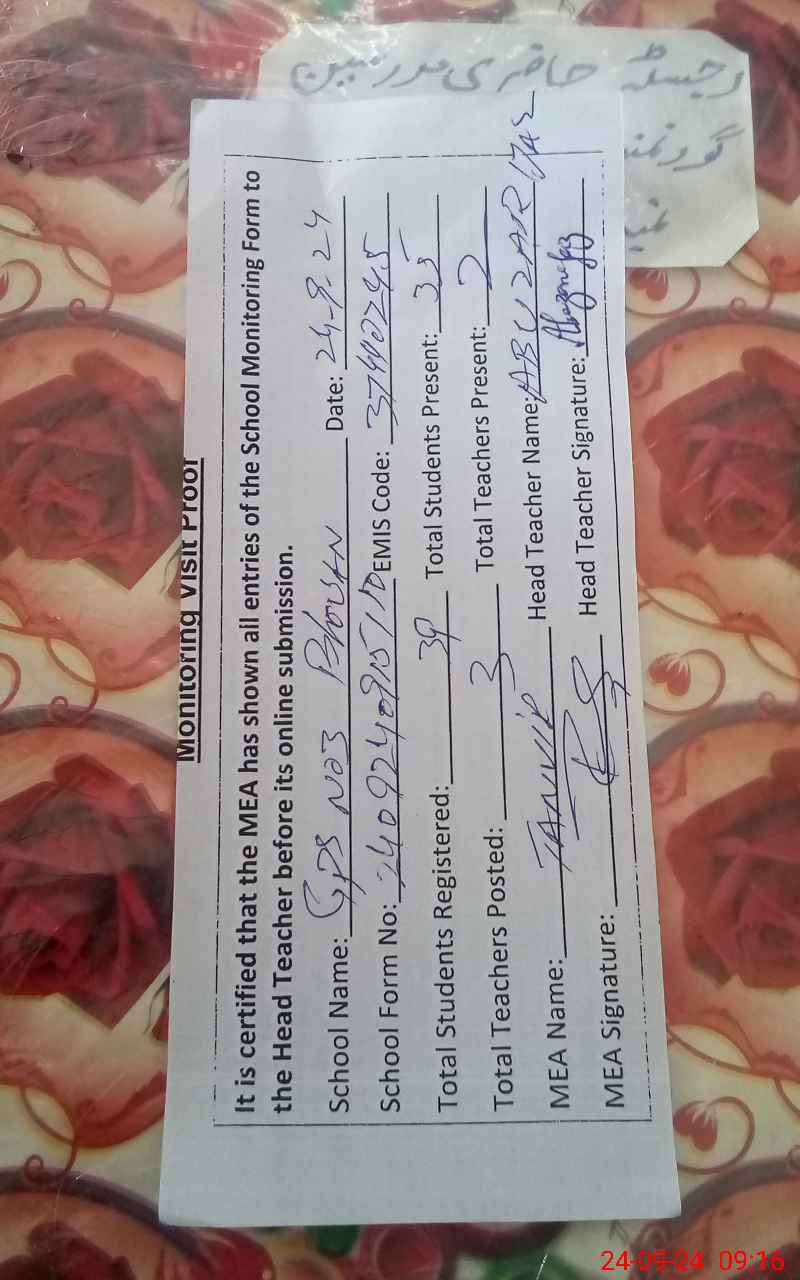 رجسٹر حاضری مدرسین
گورنمنٹ
Monitoring Visit Proof
It is certified that the MEA has shown all entries of the School Monitoring Form to
the Head Teacher before its online submission.
School Name: GPS No3 Bhousan Date: 24-9-24
School Form No: EMIS Code: 37440245
Total Students Registered: 39 Total Students Present: 35
Total Teachers Posted: 3 Total Teachers Present: 2
MEA Name: TANVIR Head Teacher Name: ABUZAR
MEA Signature: Head Teacher Signature:
24-09-24 09:16